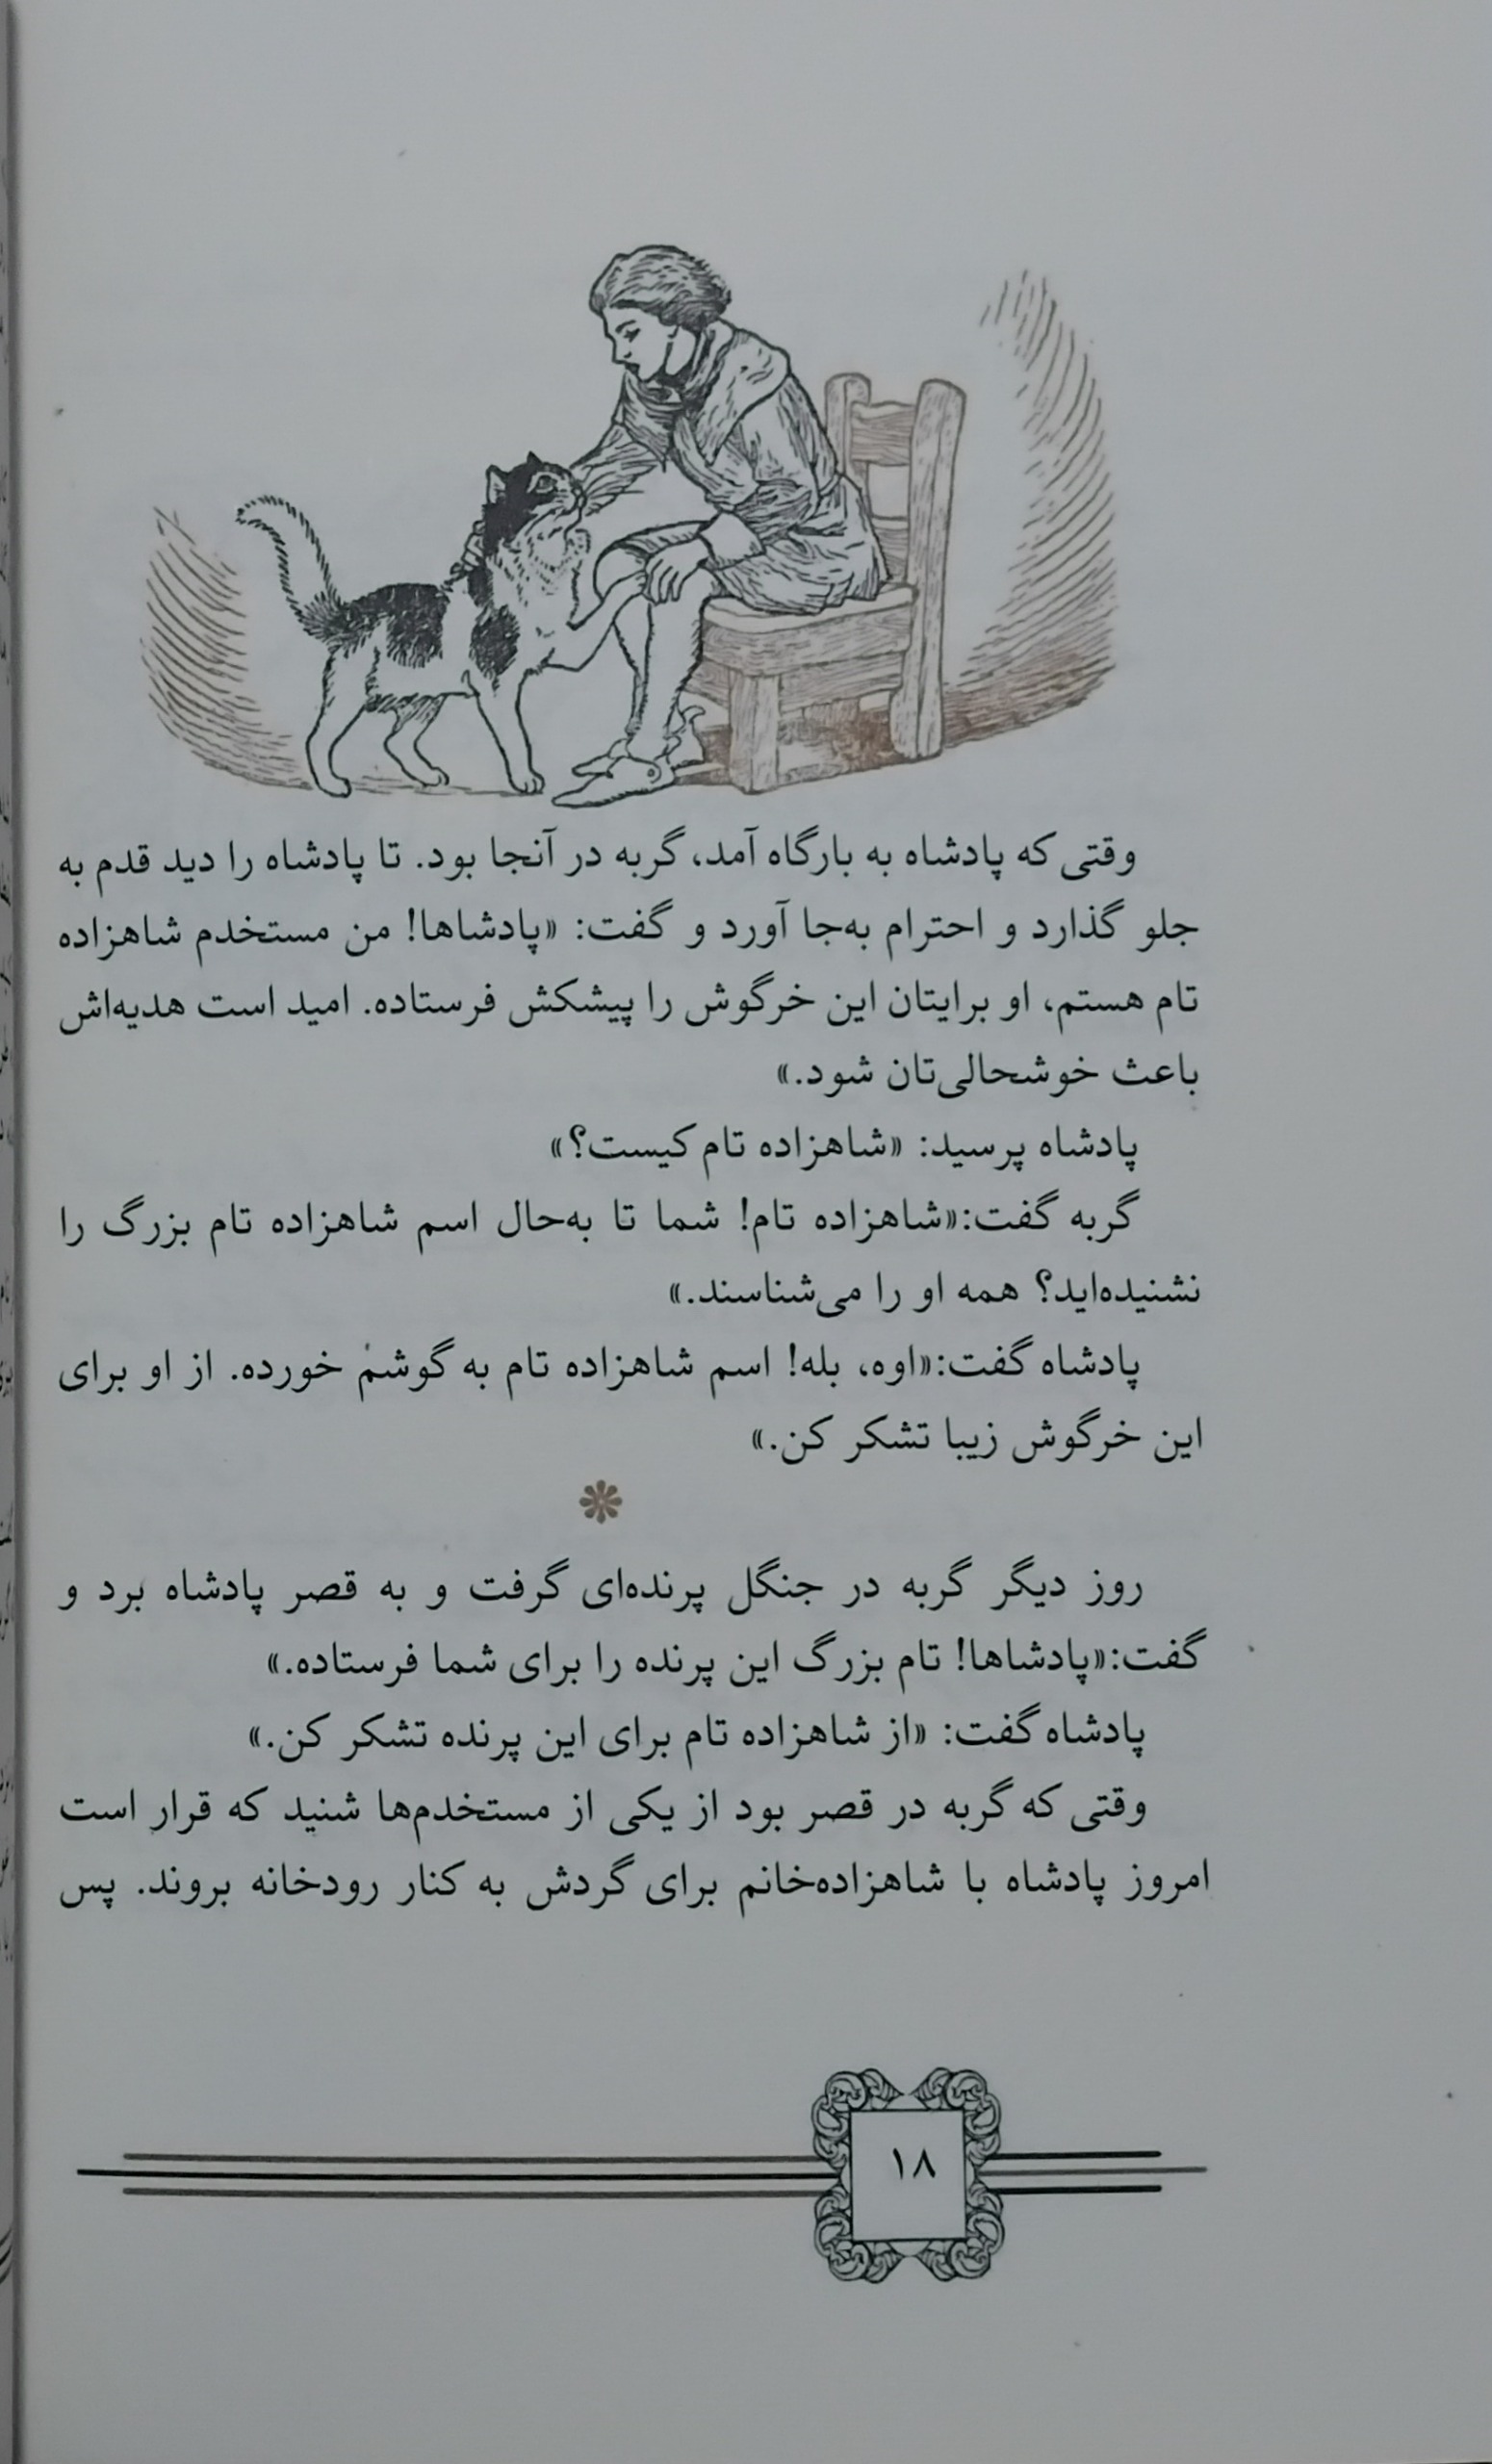 وقتی که پادشاه به بارگاه آمد، گربه در آنجا بود. تا پادشاه را دید قدم به
جلو گذارد و احترام به‌جا آورد و گفت: «پادشاها! من مستخدم شاهزاده
تام هستم، او برایتان این خرگوش را پیشکش فرستاده. امید است هدیه‌اش
باعث خوشحالی‌تان شود.»
پادشاه پرسید: «شاهزاده تام کیست؟»
گربه گفت:«شاهزاده تام! شما تا به‌حال اسم شاهزاده تام بزرگ را
نشنیده‌اید؟ همه او را می‌شناسند.»
پادشاه گفت:«اوه، بله! اسم شاهزاده تام به گوشم خورده. از او برای
این خرگوش زیبا تشکر کن.»
روز دیگر گربه در جنگل پرنده‌ای گرفت و به قصر پادشاه برد و
گفت:«پادشاها! تام بزرگ این پرنده را برای شما فرستاده.»
پادشاه گفت: «از شاهزاده تام برای این پرنده تشکر کن.»
وقتی که گربه در قصر بود از یکی از مستخدم‌ها شنید که قرار است
امروز پادشاه با شاهزاده‌خانم برای گردش به کنار رودخانه بروند. پس
۱۸